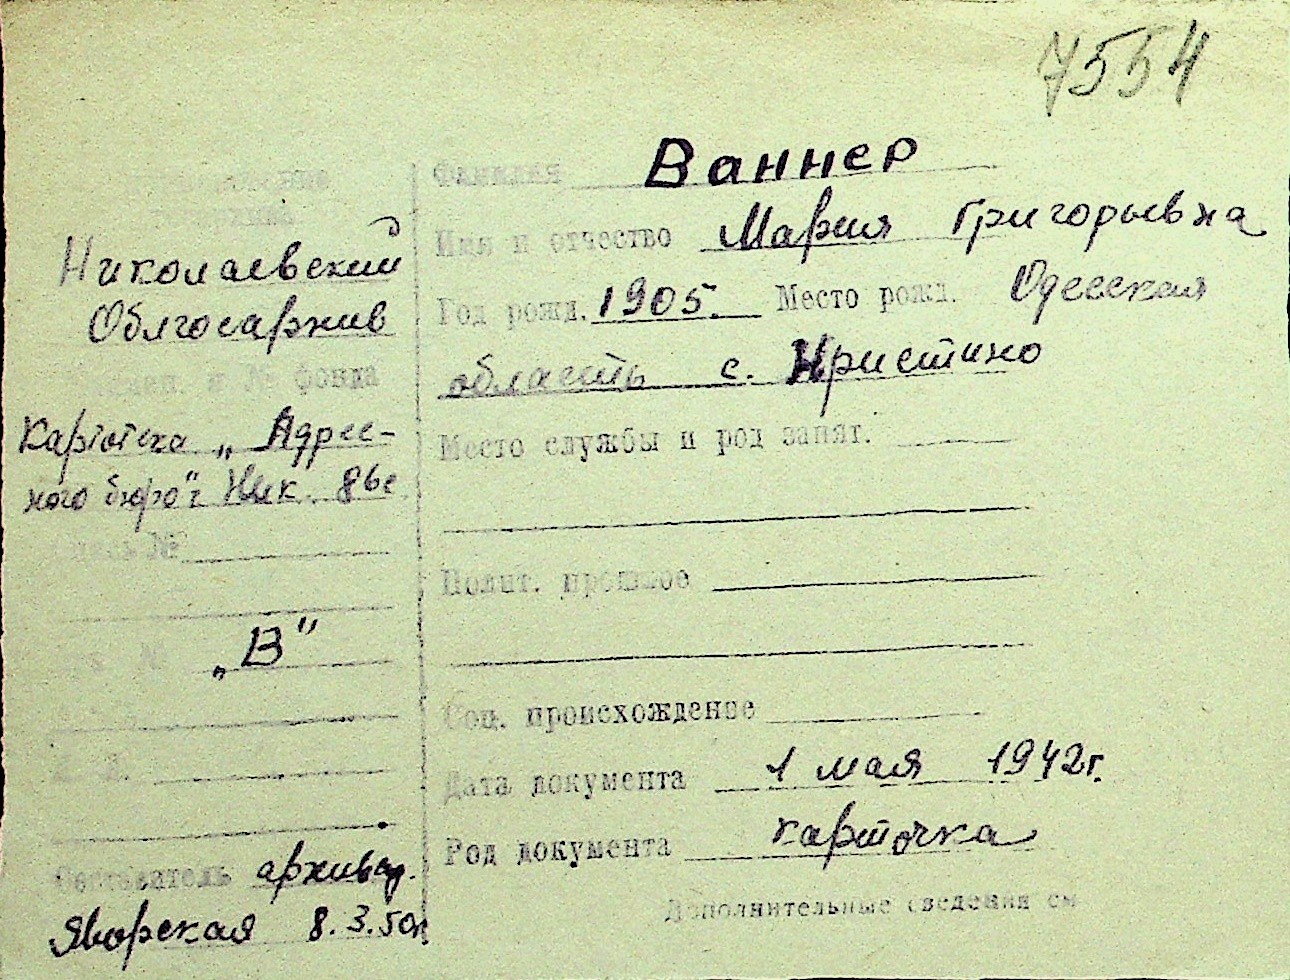 7554
Фамилия Ваннер
Имя и отчество Мария Григорьевна
Год рожд. 1905. Место рожд. Одесская
область с. Кристино
Место службы и род занят.
Полит. прошлое
Соц. происхождение
Дата документа 1 мая 1942г.
Род документа карточка
Дополнительные сведения см
Николаевский
Облгосархив
и № фонда
Картотека „Адрес-
ного бюро" г. Ник.
Опись №
„В"
Составитель архивар.
Яворская 8.3.50г